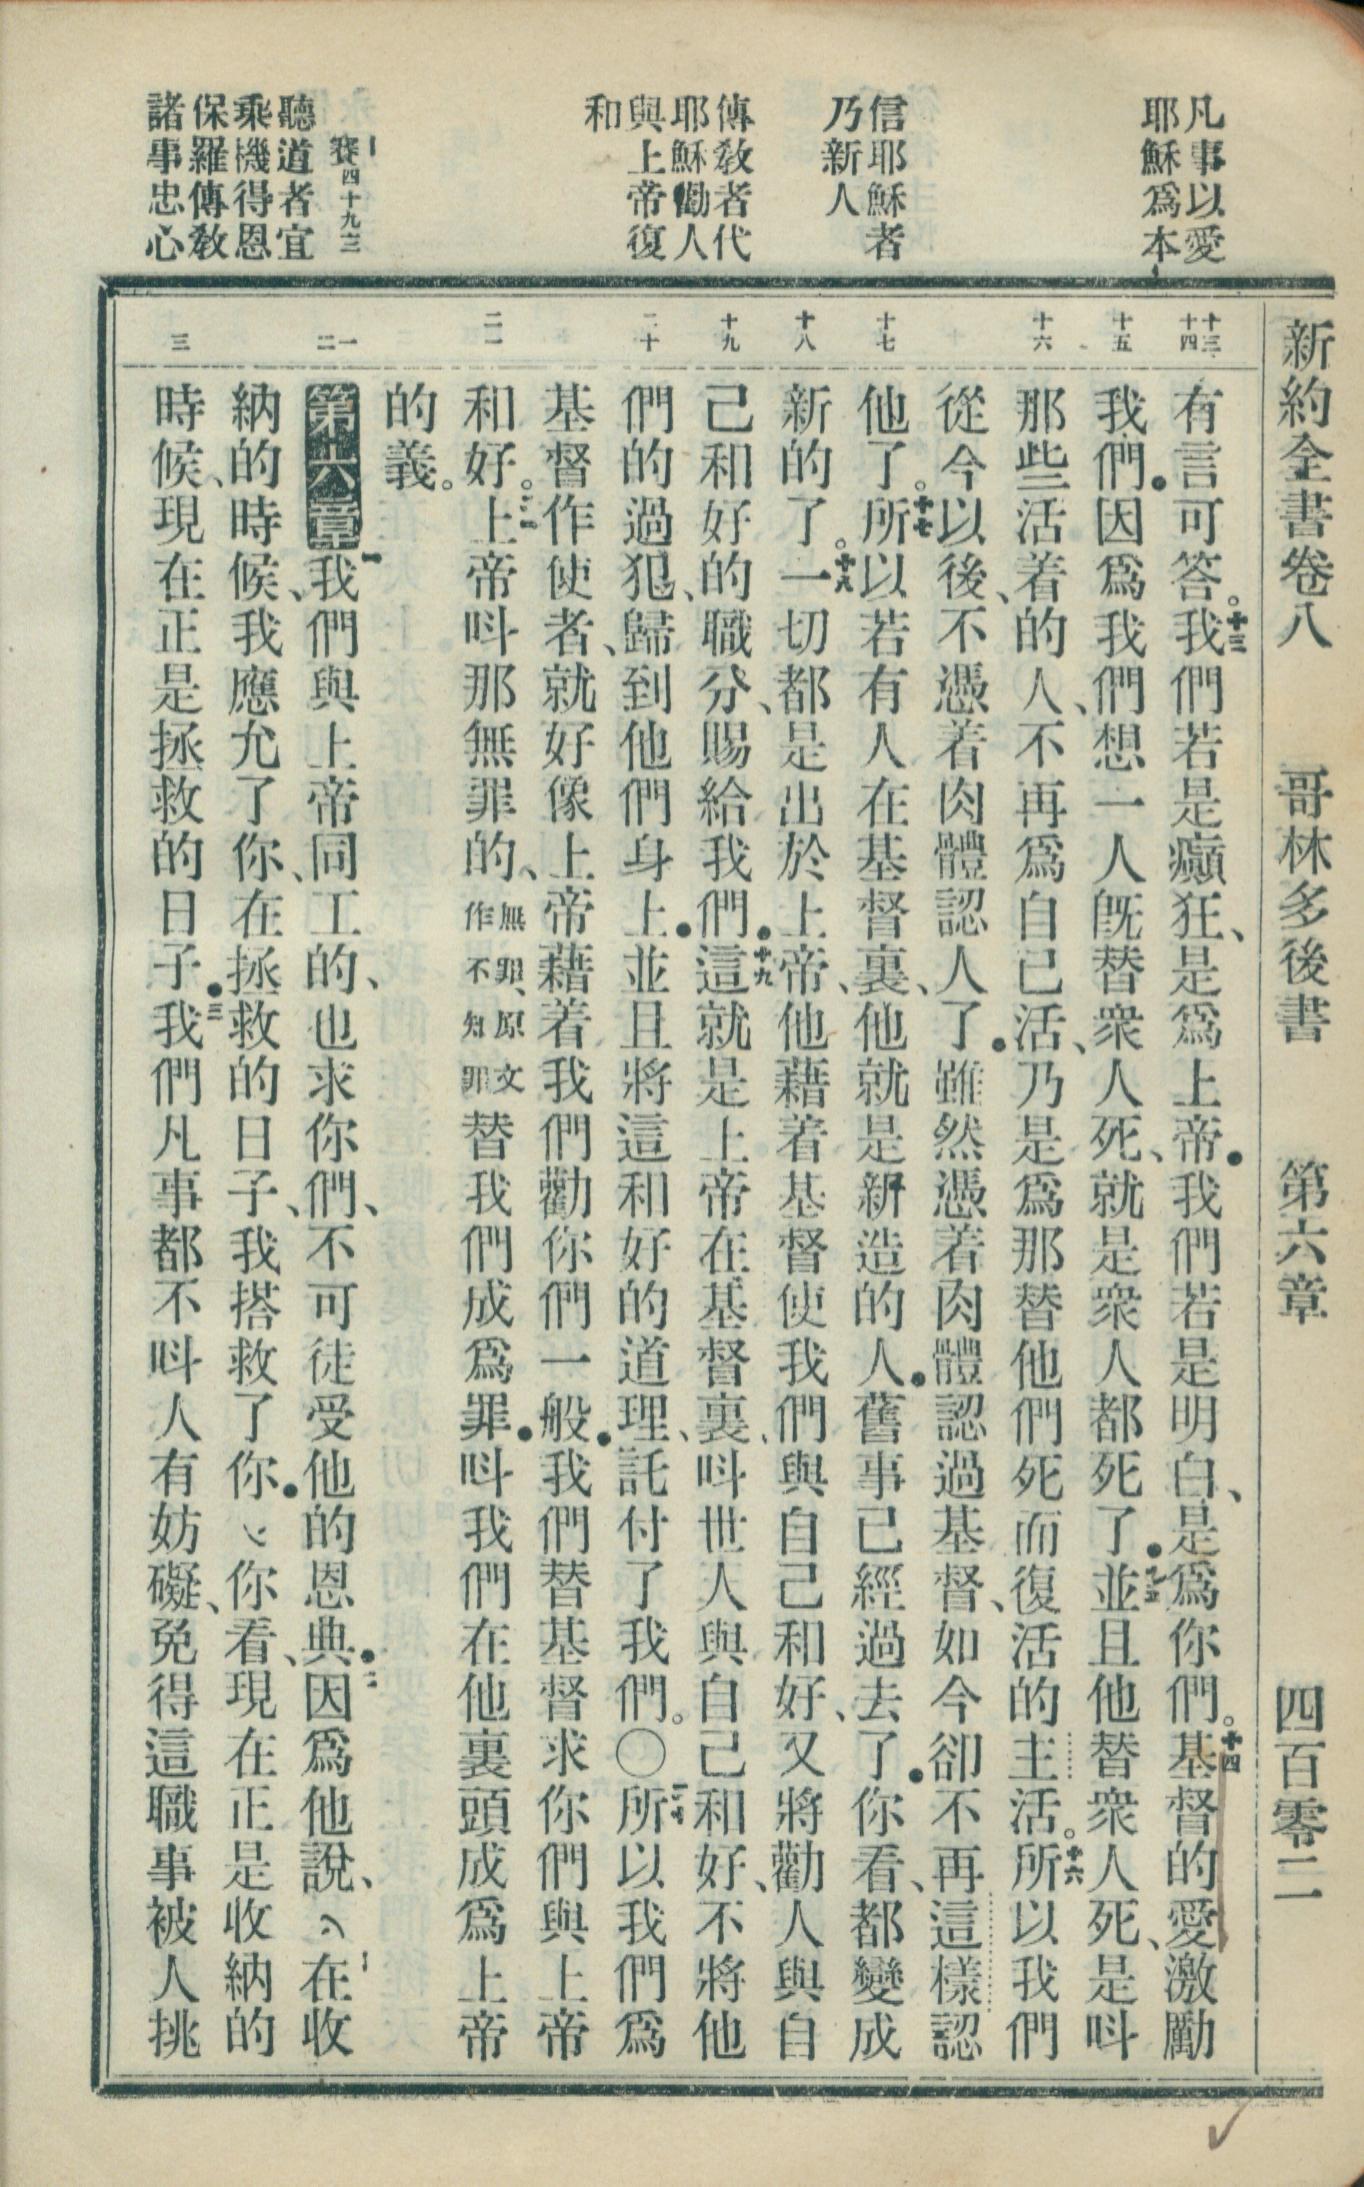 新約全書卷八　哥林多後書　第六章　四百零二
凡事以愛
耶穌爲本
信耶穌者
乃新人
傳敎者代
耶穌勸人
與上帝復
和
賽四十九三
聽道者宜
乘機得恩
保羅傳敎
諸事忠心
十三
十四
有言可答。十三我們若是癲狂、是爲上帝●我們若是明白、是爲你們。十四基督的愛激勵
十五
我們●因爲我們想一人旣替衆人死、就是衆人都死了●十五並且他替衆人死、是呌
十六
那些活着的人、不再爲自己活、乃是爲那替他們死而復活的主活。十六所以我們
從今以後、不憑着肉體認人了●雖然憑着肉體認過基督、如今卻不再這樣認
十七
他了。十七所以若有人在基督裏、他就是新造的人●舊事已經過去了●你看、都變成
十八
新的了。十八一切都是出於上帝、他藉着基督使我們與自己和好、又將勸人與自
十九
己和好的職分、賜給我們●十九這就是上帝在基督裏、呌世人與自己和好、不將他
二十
們的過犯、歸到他們身上●並且將這和好的道理、託付了我們。〇二十所以我們爲
基督作使者、就好像上帝藉着我們勸你們一般●我們替基督求你們與上帝
二一
和好。二一上帝呌那無罪的、無罪、原文作不知罪替我們成爲罪●呌我們在他裏頭成爲上帝
的義。
一
二
第六章一我們與上帝同工的、也求你們、不可徒受他的恩典●二因爲他說、在收
納的時候、我應允了你、在拯救的日子、我搭救了你●你看、現在正是收納的
三
時候、現在正是拯救的日子●三我們凡事都不呌人有妨礙、免得這職事被人挑